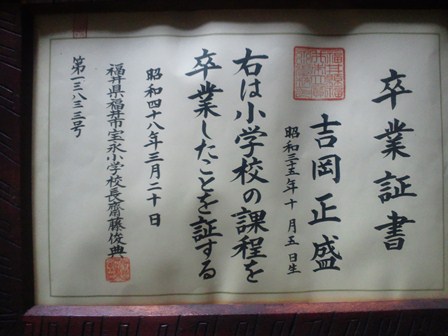 卒業証書
吉岡正盛
昭和三五年十月五日生
右は小学校の課程を
卒業したことを証する
昭和四十八年三月二十日
福井県福井市宝永小学校長齋藤俊典
第一三八三三号